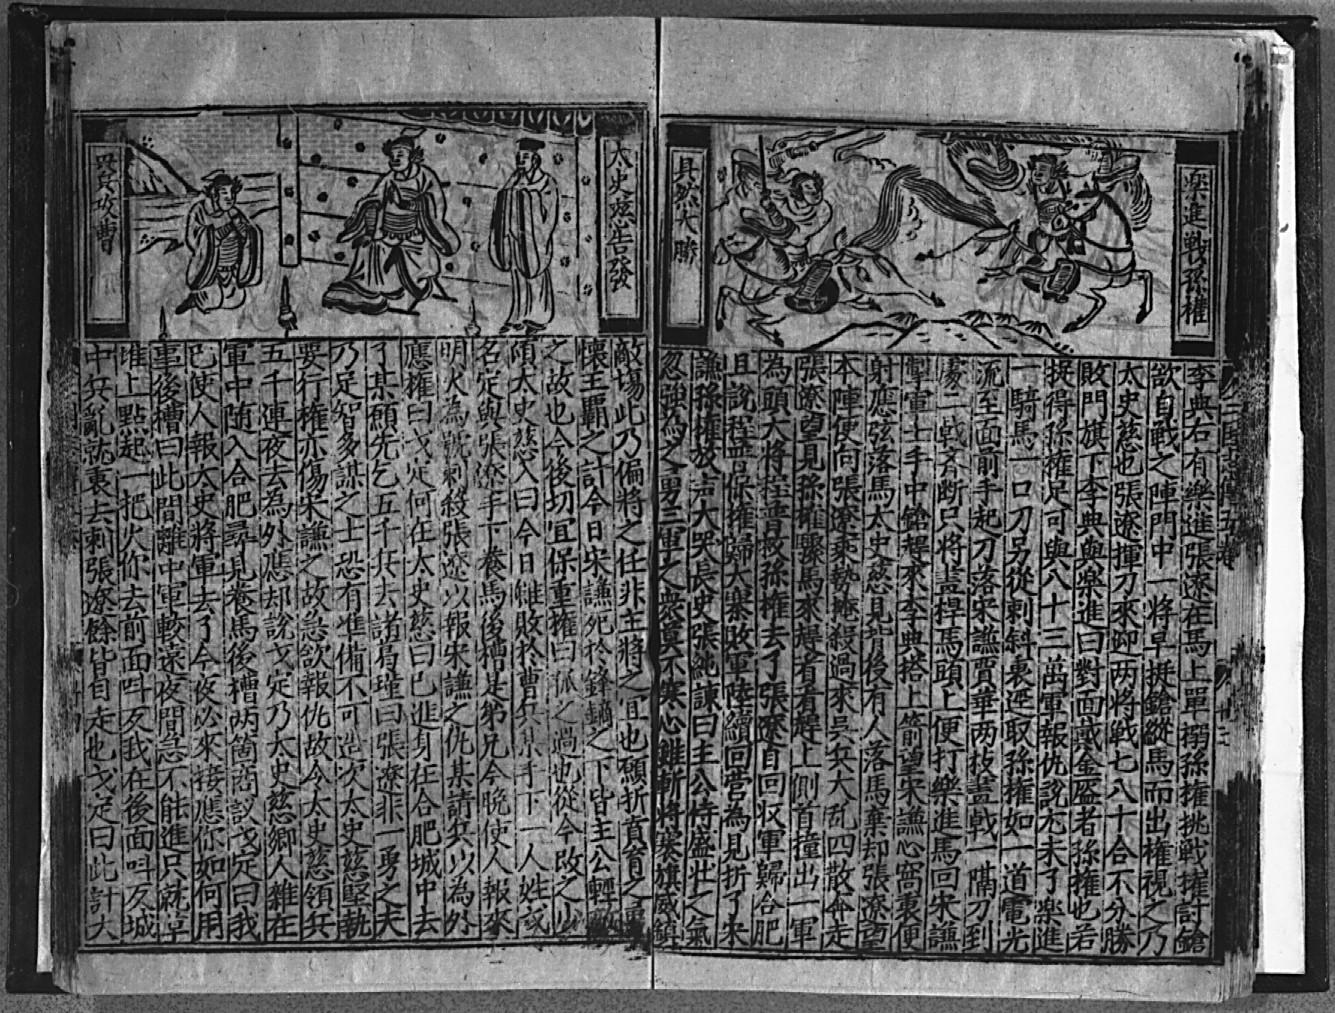 樂進戰孫權
具然大勝
李典右有樂進張遼在馬上單搦孫權挑戰權討鎗
欲自戰之陣門中一將早挺鎗縱馬而出權視之乃
太史慈也張遼揮刀來迎两將戰七八十合不分勝
敗門旗下李典與樂進曰對面戴金盔者孫權也若
捉得孫權足可與八十三萬軍報仇說尤未了樂進
一騎馬一口刀另從剌斜裏逕取孫權如一道電光
流至面前手起刀落宋謙賈華两枝畫戟一隔刀到
處二戟齐断只將畫桿馬頭上便打樂進馬回宋謙
掣軍士手中鎗趕來李典搭上箭望宋謙心窩裏便
射應弦落馬太史慈見背後有人落馬棄却張遼望
本陣便向張遼乘勢掩殺過來吳兵大乱四散奔走
張遼望見孫權驟馬來趕看看趕上側首撞出一軍
為頭大將程普救孫權去了張遼自回収軍歸合肥
且說程普保權歸大寨敗軍陸續回營為見折了宋
謙孫權放声大哭長史張紘諫曰主公恃盛壮之氣
忽強為之勇三軍之衆莫不寒心雖斬將搴旗威鎮
太史慈告發
貿兵攻曹
敵塲此乃偏將之任非主將之宜也願折賁育之勇
懷王覇之計今日宋謙死於鋒鏑之下皆主公輕敵
之故也今後切宜保重權曰孤之過也從今改之少
頃太史慈入曰今日雖敗於曹兵某手下一人姓戈
名定與張遼手下養馬後槽是弟兄今晚使人報來
明火為號刺殺張遼以報宋謙之仇某請兵以為外
應權曰戈定何在太史慈曰已進身在合肥城中去
了某願先乞五千兵去諸葛瑾曰張遼非一勇之夫
乃足智多謀之士恐有准備不可造次太史慈堅執
要行權亦傷宋謙之故急欲報仇故令太史慈領兵
五千連夜去為外應却說戈定乃太史慈鄉人雜在
軍中随入合肥尋見養馬後槽两箇商議戈定曰我
已使人報太史將軍去了今夜必來接應你如何用
事後槽曰此間離中軍較遠夜間急不能進只就草
堆上點起一把火你去前面叫反我在後面叫反城
中兵亂就裏去刺張遼餘皆自走也戈定曰此計大